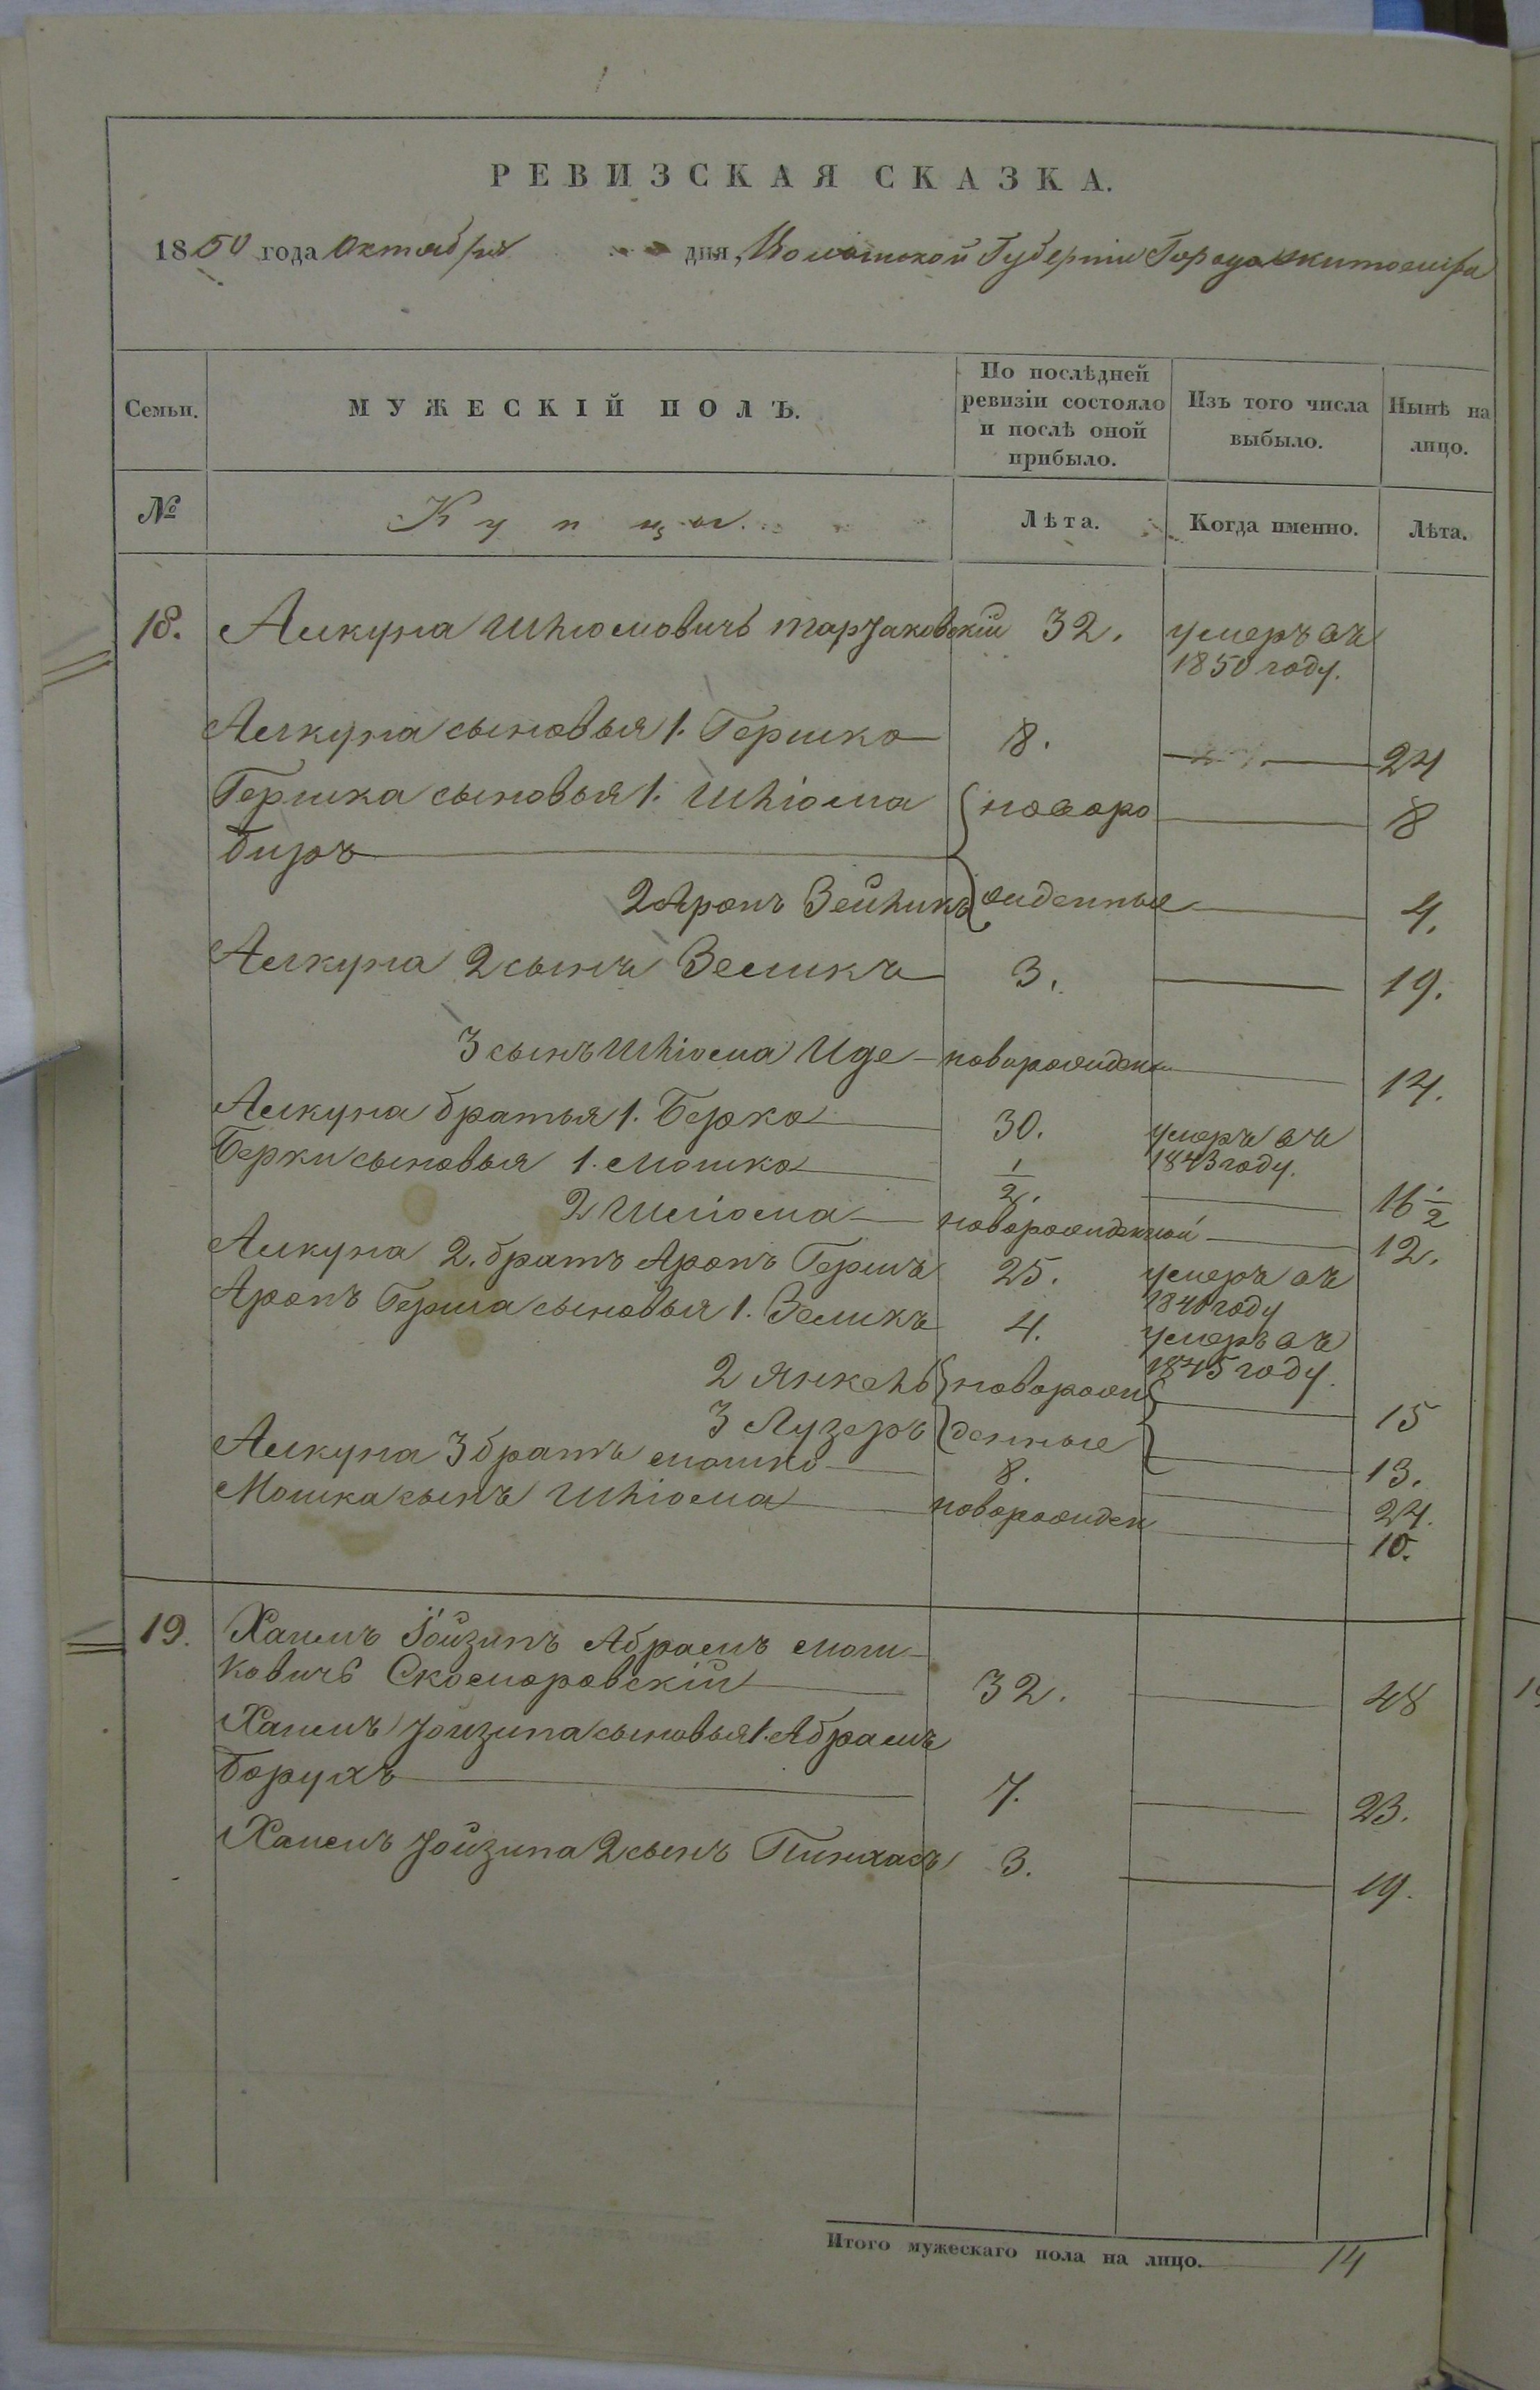 РЕВИЗСКАЯ СКАЗКА.
1850 года Октября дня, Волынской Губерніи Города Житомира
Семьи. МУЖЕСКІЙ ПОЛЪ. По послѣдней ревизіи состояло и послѣ оной прибыло. Изъ того числа выбыло. Нынѣ на лицо.
№ Купцы. Лѣта. Когда именно. Лѣта.
18. Аккуна Шліомовичъ 32. умеръ въ
1850 году.
Аккуна сыновья 1. Гершко 8. 24
Гершка сыновья 1. Шліома новоро 8
биръ
2 Аронъ Зейликъ жденные 4.
Аккуна 2 сынъ Зеликъ 3. 19.
3 сынъ Шліома Иде новорожден 14.
Аккуна братья 1. Берко 30. умеръ въ
1843 году.
Берки сыновья 1. Мошко 1/2. 16 1/2
2 Шліома новорожденный 12.
Аккуна 2. братъ Аронъ Гершъ 25. умеръ въ
1840 году
Аронъ Герша сыновья 1. Зеликъ 4. умеръ въ
1845 году.
2 Янкель новорож 15
3 Лузеръ денные 13.
Аккуна 3 братъ Мошко 8. 24.
Мошка сынъ Шліома новорожден 10.
19. Хаимъ Іойзипъ Абрамъ Мош-
ковичъ Скоморовскій 32. 48
Хаимъ Іойзипа сыновья 1. Абрамъ
Борухъ 7. 23.
Хаимъ Іойзипа 2 сынъ Пинхасъ 3. 19.
Итого мужескаго пола на лицо. 14